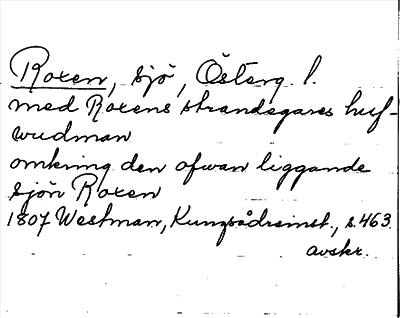 Roxen, sjö, Österg. l.
med Roxens strandegares huf-
wudman
omkring den ofwan liggande
sjön Roxen
1807 Westman, Kungsådreinst., s. 463.
avskr.